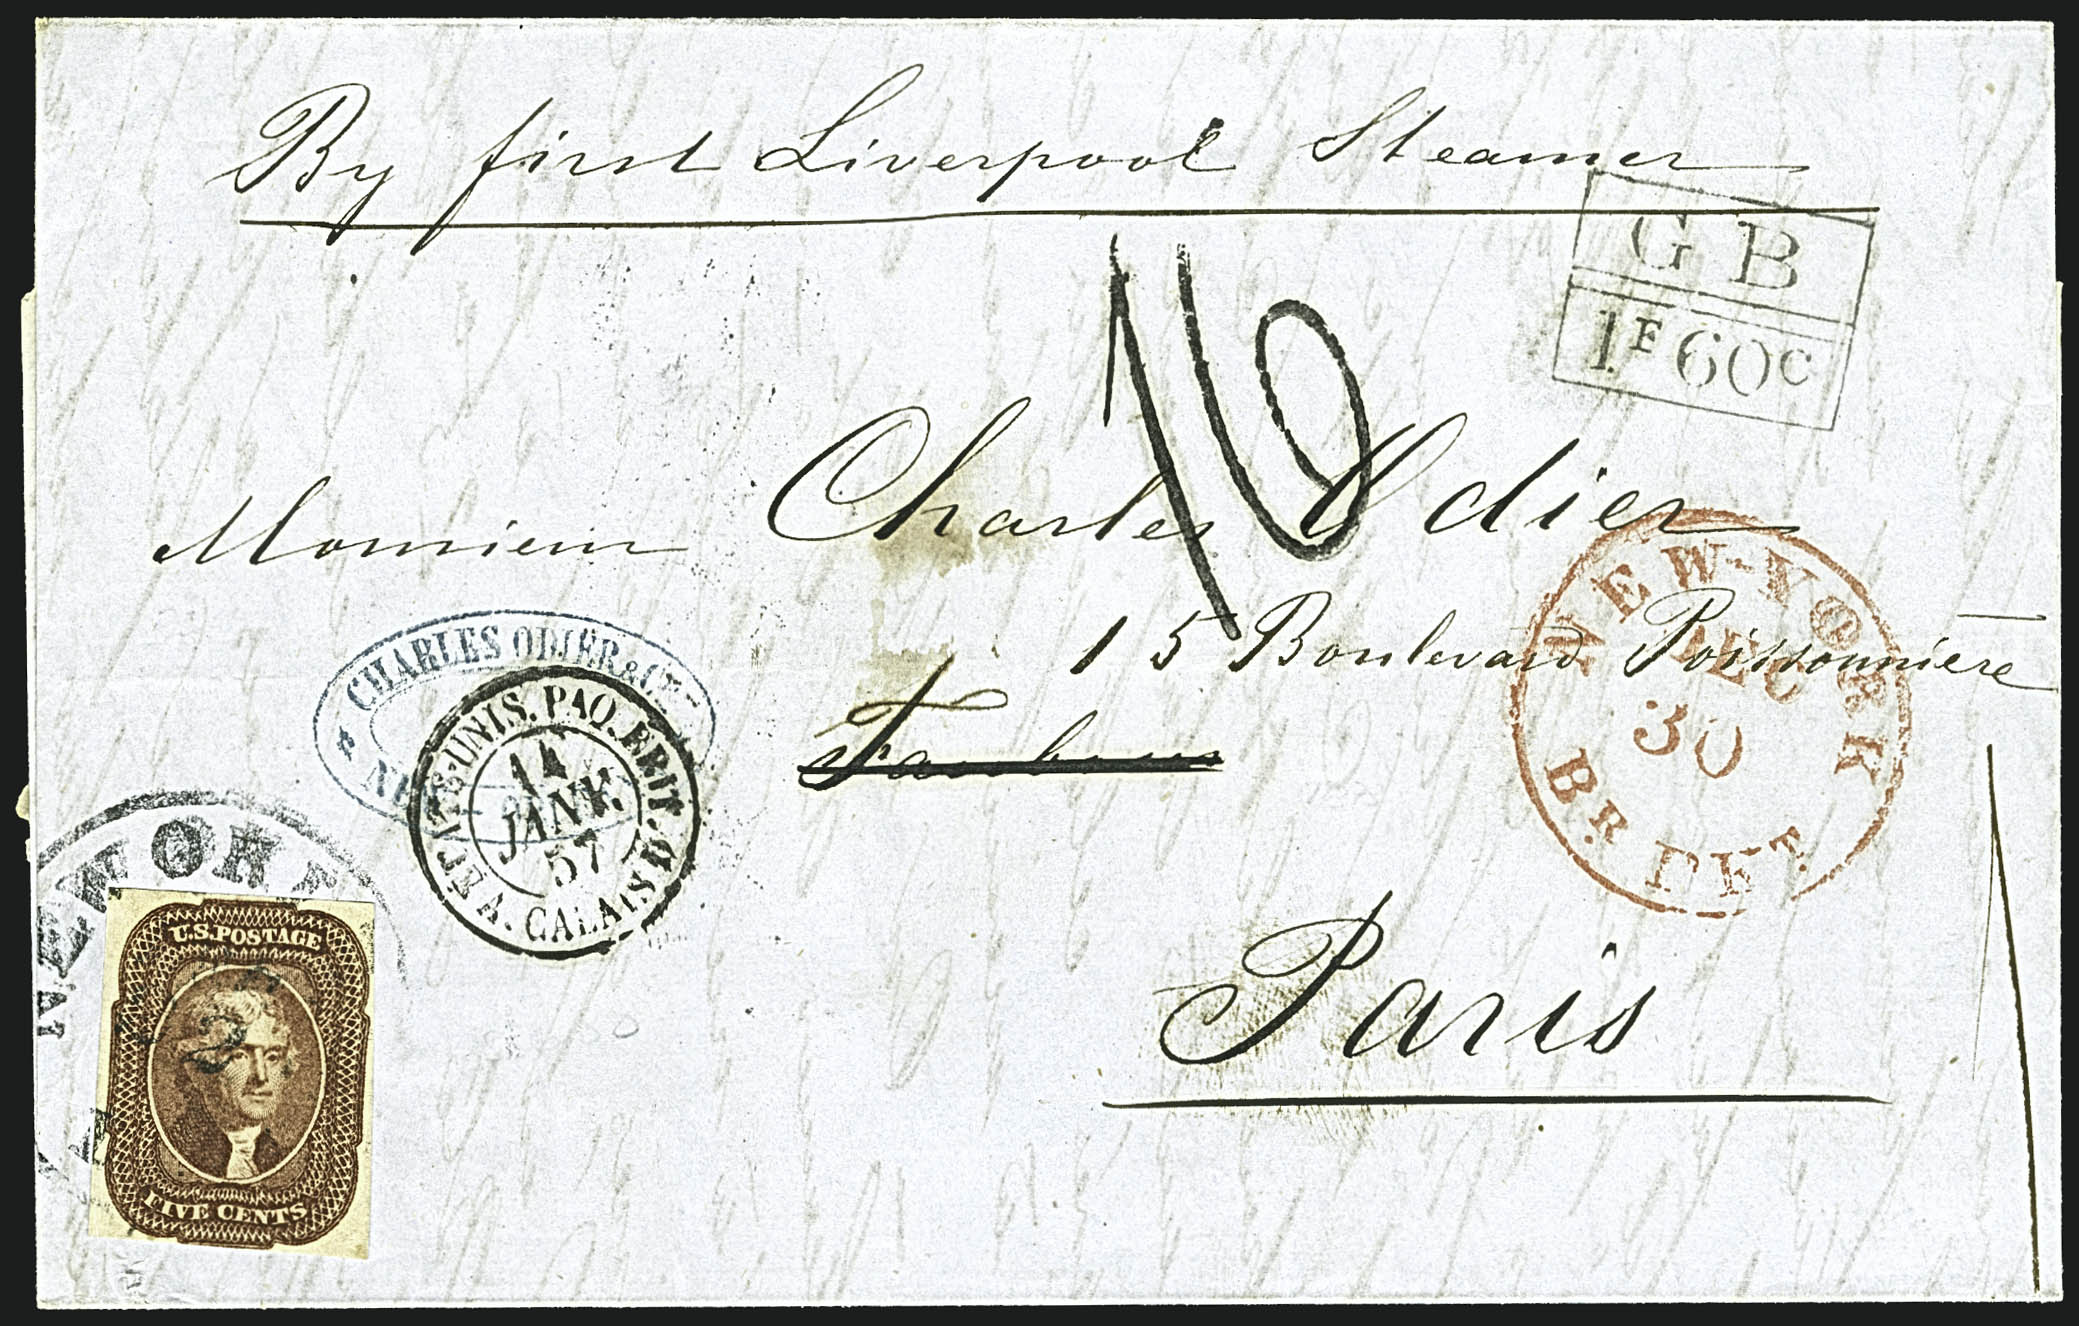 By first Liverpool Steamer
G B
1F60C
16
Monsieur Charles Odier
15 Boulevard Poissonnière
Faubourg
Paris
NEW-YORK
DEC
30
BR. PKT.
CHARLES ODIER & CO
NEW
ÉTATS-UNIS. PAQ. BRIT. A. CALAIS
14
JANV.
57
NEW ORL
2
U.S. POSTAGE
FIVE CENTS